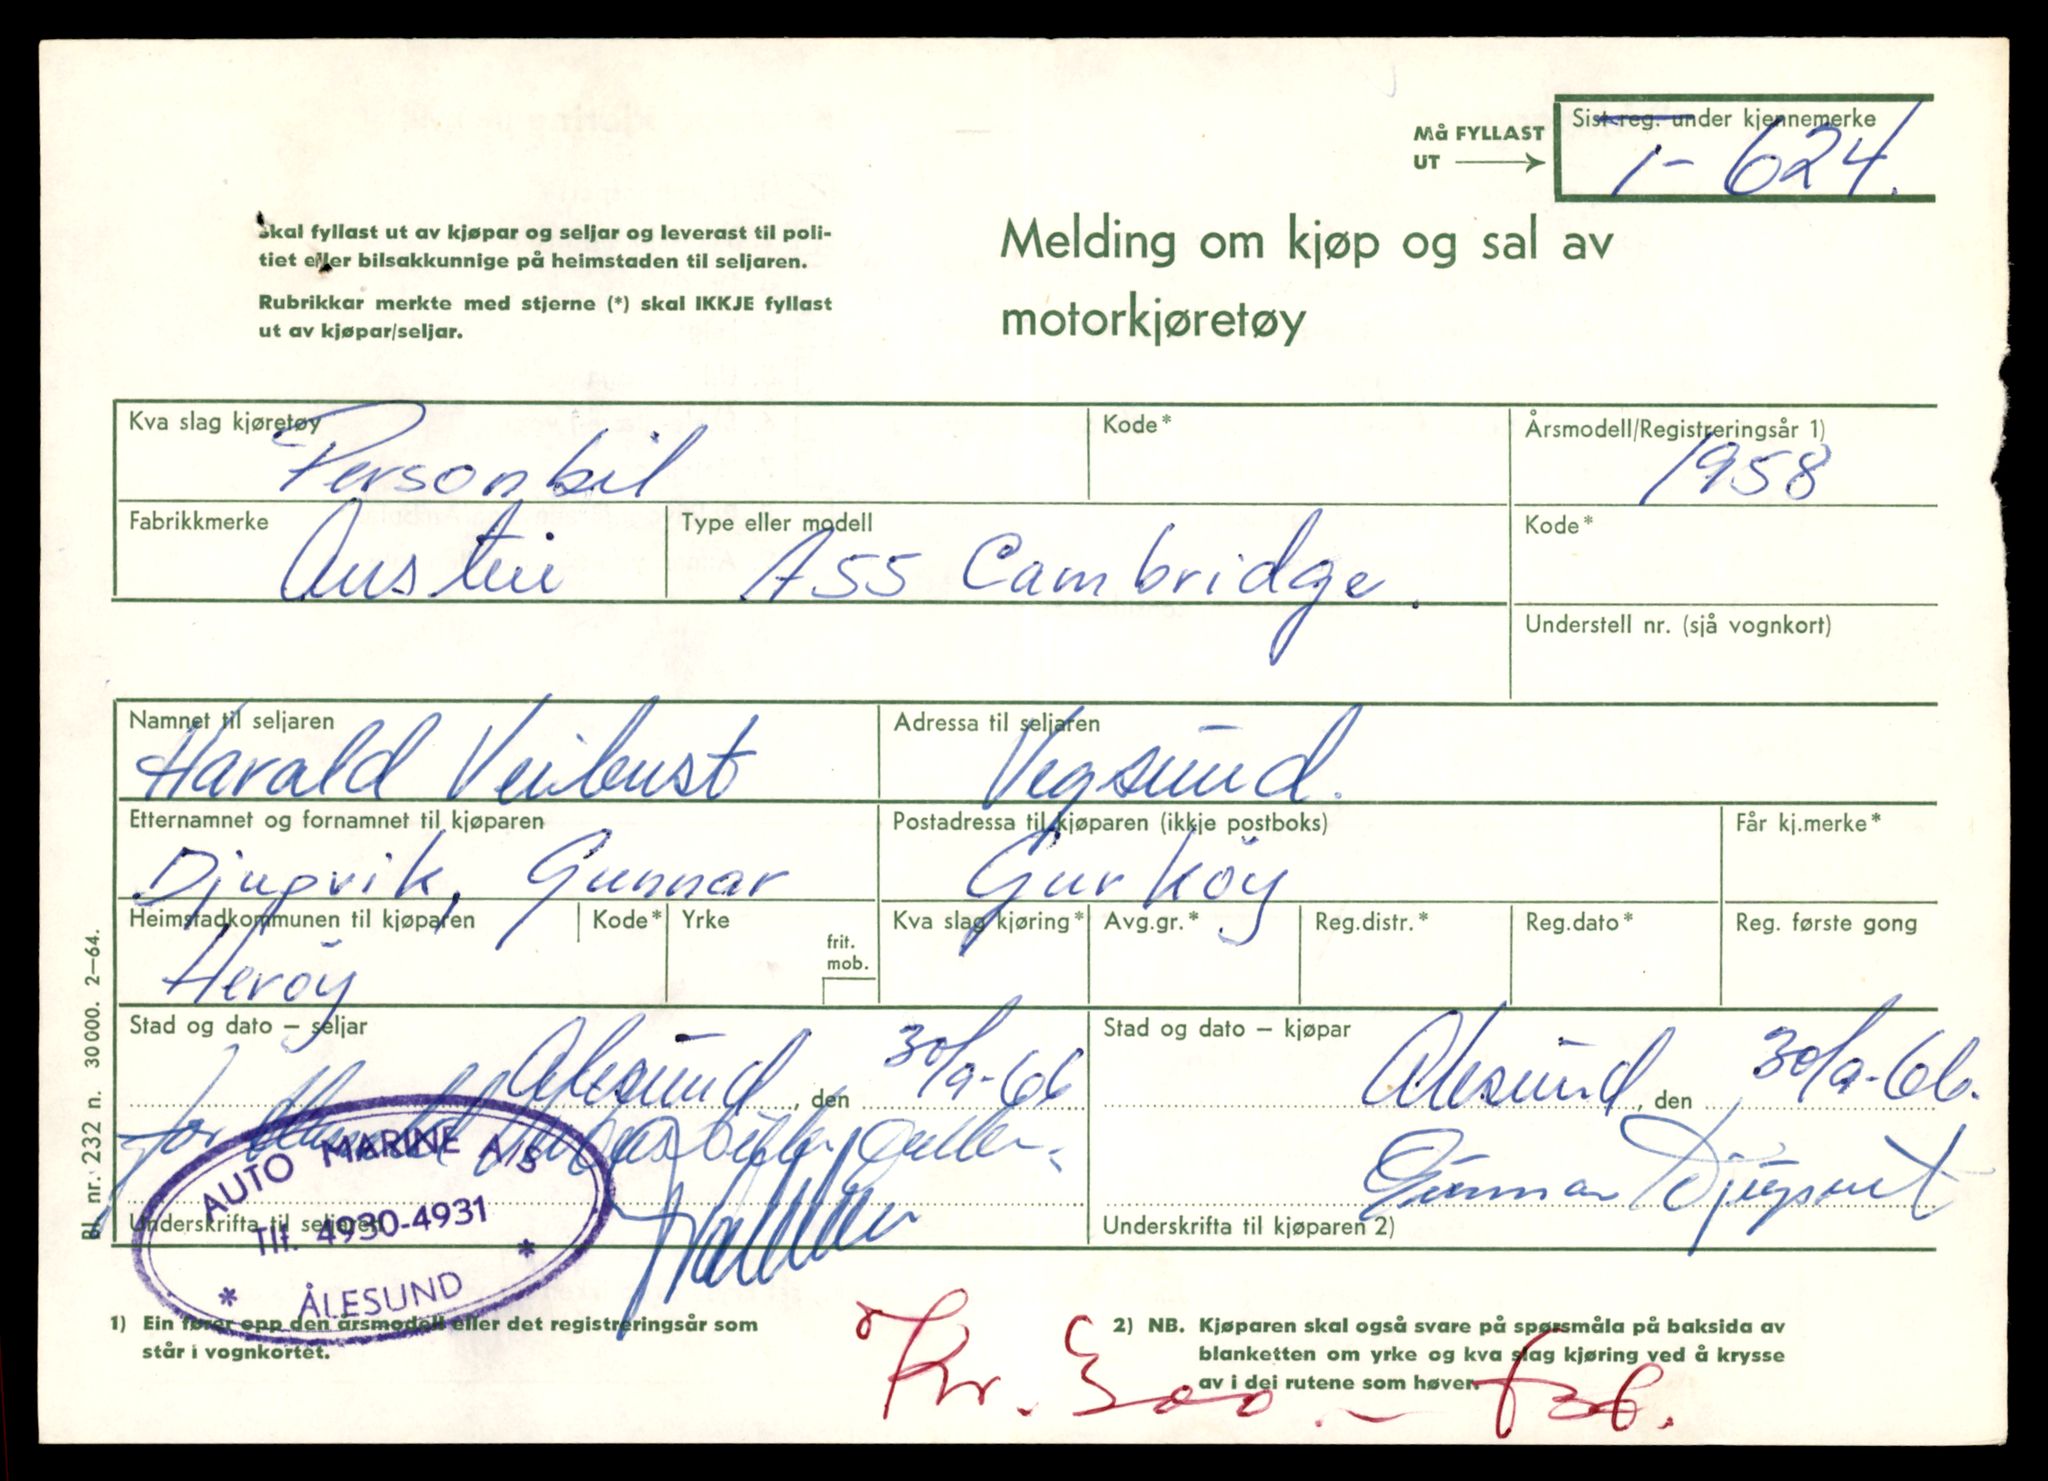 Må FYLLAST UT
Sist reg. under kjennemerke
624.
Skal fyllast ut av kjøpar og seljar og leverast til poli-
tiet eller bilsakkunnige på heimstaden til seljaren.
Rubrikkar merkte med stjerne (*) skal IKKJE fyllast
ut av kjøpar/seljar.
Melding om kjøp og sal av
motorkjøretøy
Kva slag kjøretøy Kode* Årsmodell/Registreringsår 1)
Personbil 1958
Fabrikkmerke Type eller modell Kode*
Austin A55 Cambridge.
Understell nr. (sjå vognkort)
Namnet til seljaren Adressa til seljaren
Harald Veibust Vegsund.
Etternamnet og fornamnet til kjøparen Postadressa til kjøparen (ikkje postboks) Får kj.merke*
Djupvik, Gunnar Gurköy
Heimstadkommunen til kjøparen Kode* Yrke frit. mob. Kva slag kjøring* Avg.gr.* Reg.distr.* Reg.dato* Reg. første gong
Heröy
Stad og dato – seljar Stad og dato – kjøpar
Alesund, den 30/9-66 Alesund, den 30/9-66.
for
Gunnar Djupvik
Underskrifta til seljaren Underskrifta til kjøparen 2)
AUTO MARINE A/S
Tlf. 4930-4931
* ÅLESUND *
1) Ein fører opp den årsmodell eller det registreringsår som
står i vognkortet.
2) NB. Kjøparen skal også svare på spørsmåla på baksida av
blanketten om yrke og kva slag kjøring ved å krysse
av i dei rutene som høver.
Kr. 300.–
Bl. nr. 232 n. 30 000. 2–64.